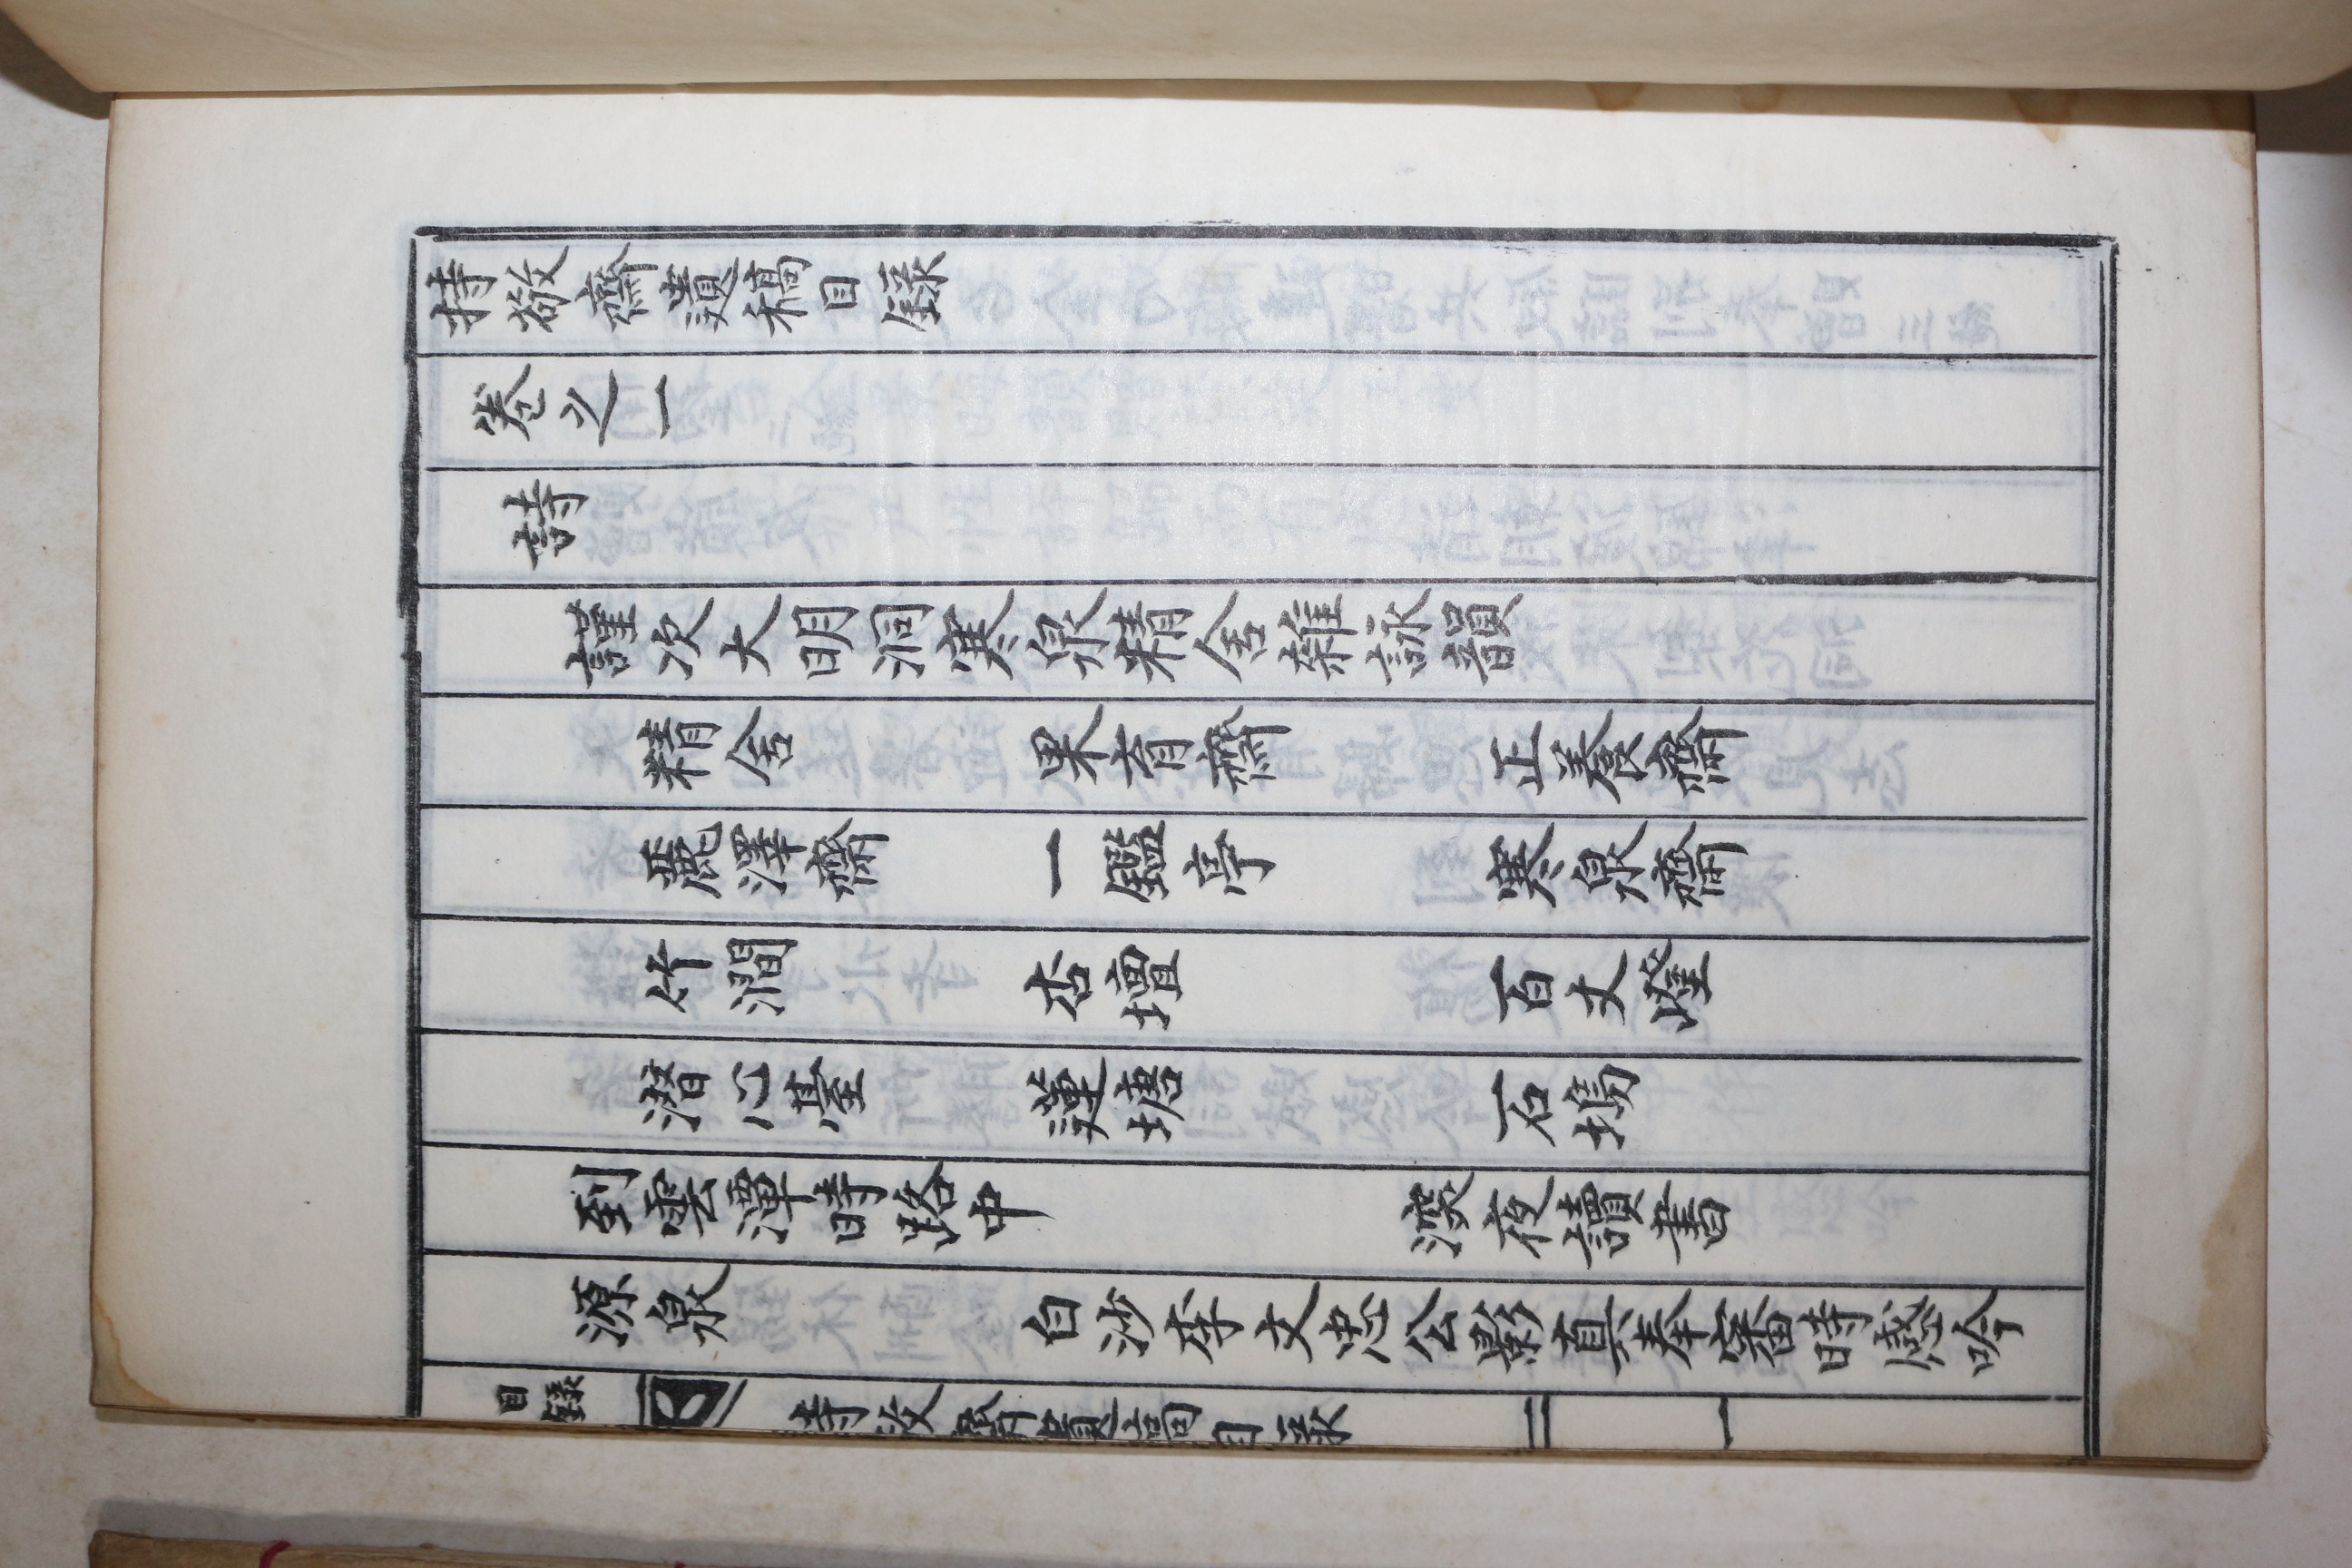 持敬齋遺稿目錄
卷之一
詩
謹次大明洞寒泉精舍雜詠韻
精舍 果育齋 正養齋
麗澤齋 一鑑亭 寒泉齋
竹澗 杏壇 百丈磴
潛心臺 蓮塘 石塢
到雲潭時路中 深夜讀書
源泉 白沙李文忠公影眞奉審時感吟
目錄 持敬齋遺稿目錄 一